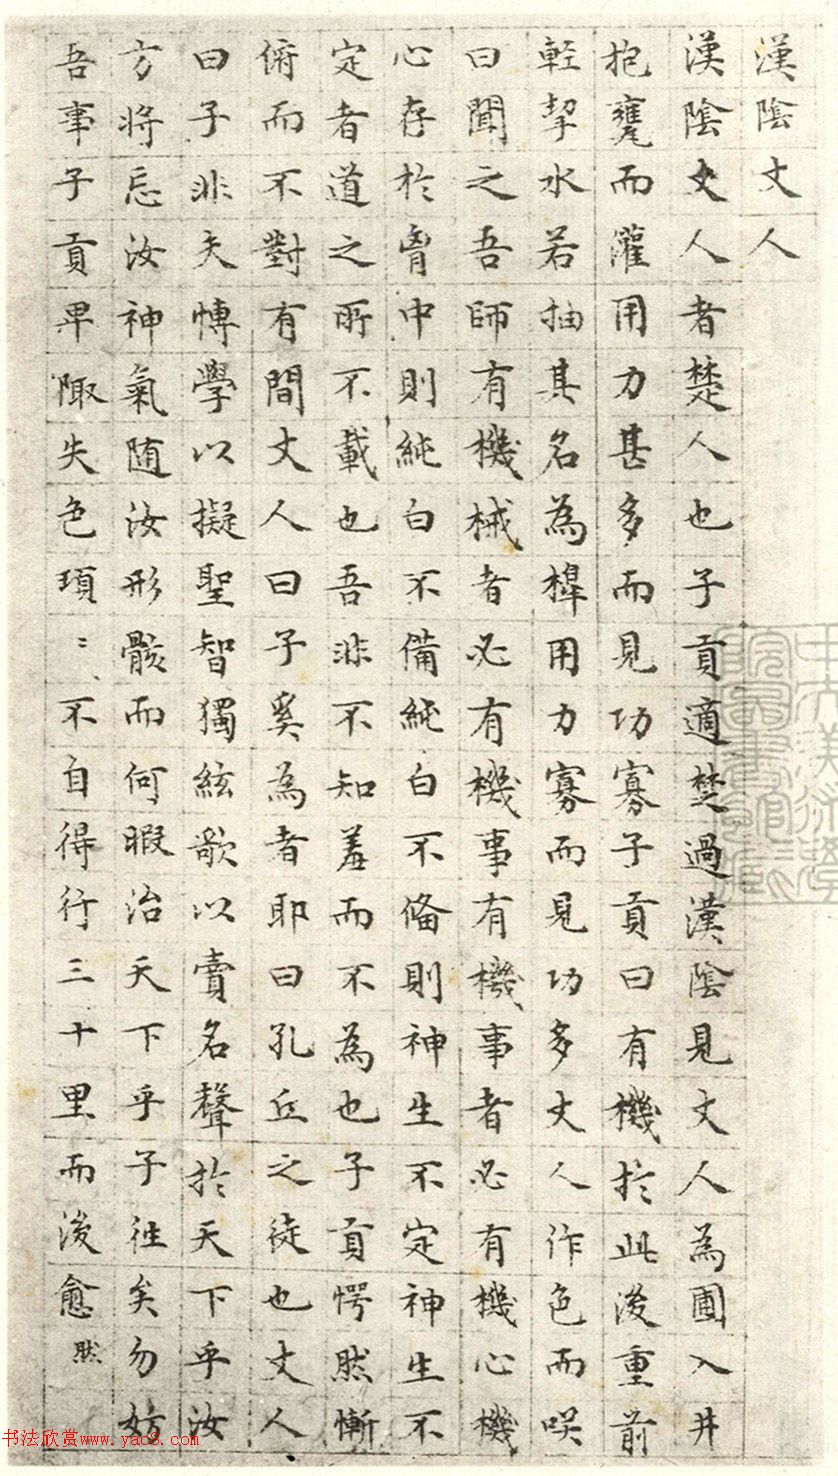 漢陰丈人
漢陰丈人者楚人也子貢適楚過漢陰見丈人為圃入井
抱甕而灌用力甚多而見功寡子貢曰有機於此後重前
輊挈水若抽其名為橰用力寡而見功多丈人作色而咲
曰聞之吾師有機械者必有機事有機事者必有機心機
心存於胷中則純白不備純白不俻則神生不定神生不
定者道之所不載也吾非不知羞而不為也子貢愕然慚
俯而不對有間丈人曰子奚為者耶曰孔丘之徒也丈人
曰子非夫博學以擬聖智獨絃歌以賣名聲於天下乎汝
方將忘汝神氣随汝形骸而何暇治天下乎子往矣勿妨
吾事子貢卑陬失色項〻不自得行三十里而後愈
然
书法欣赏www.yac8.com